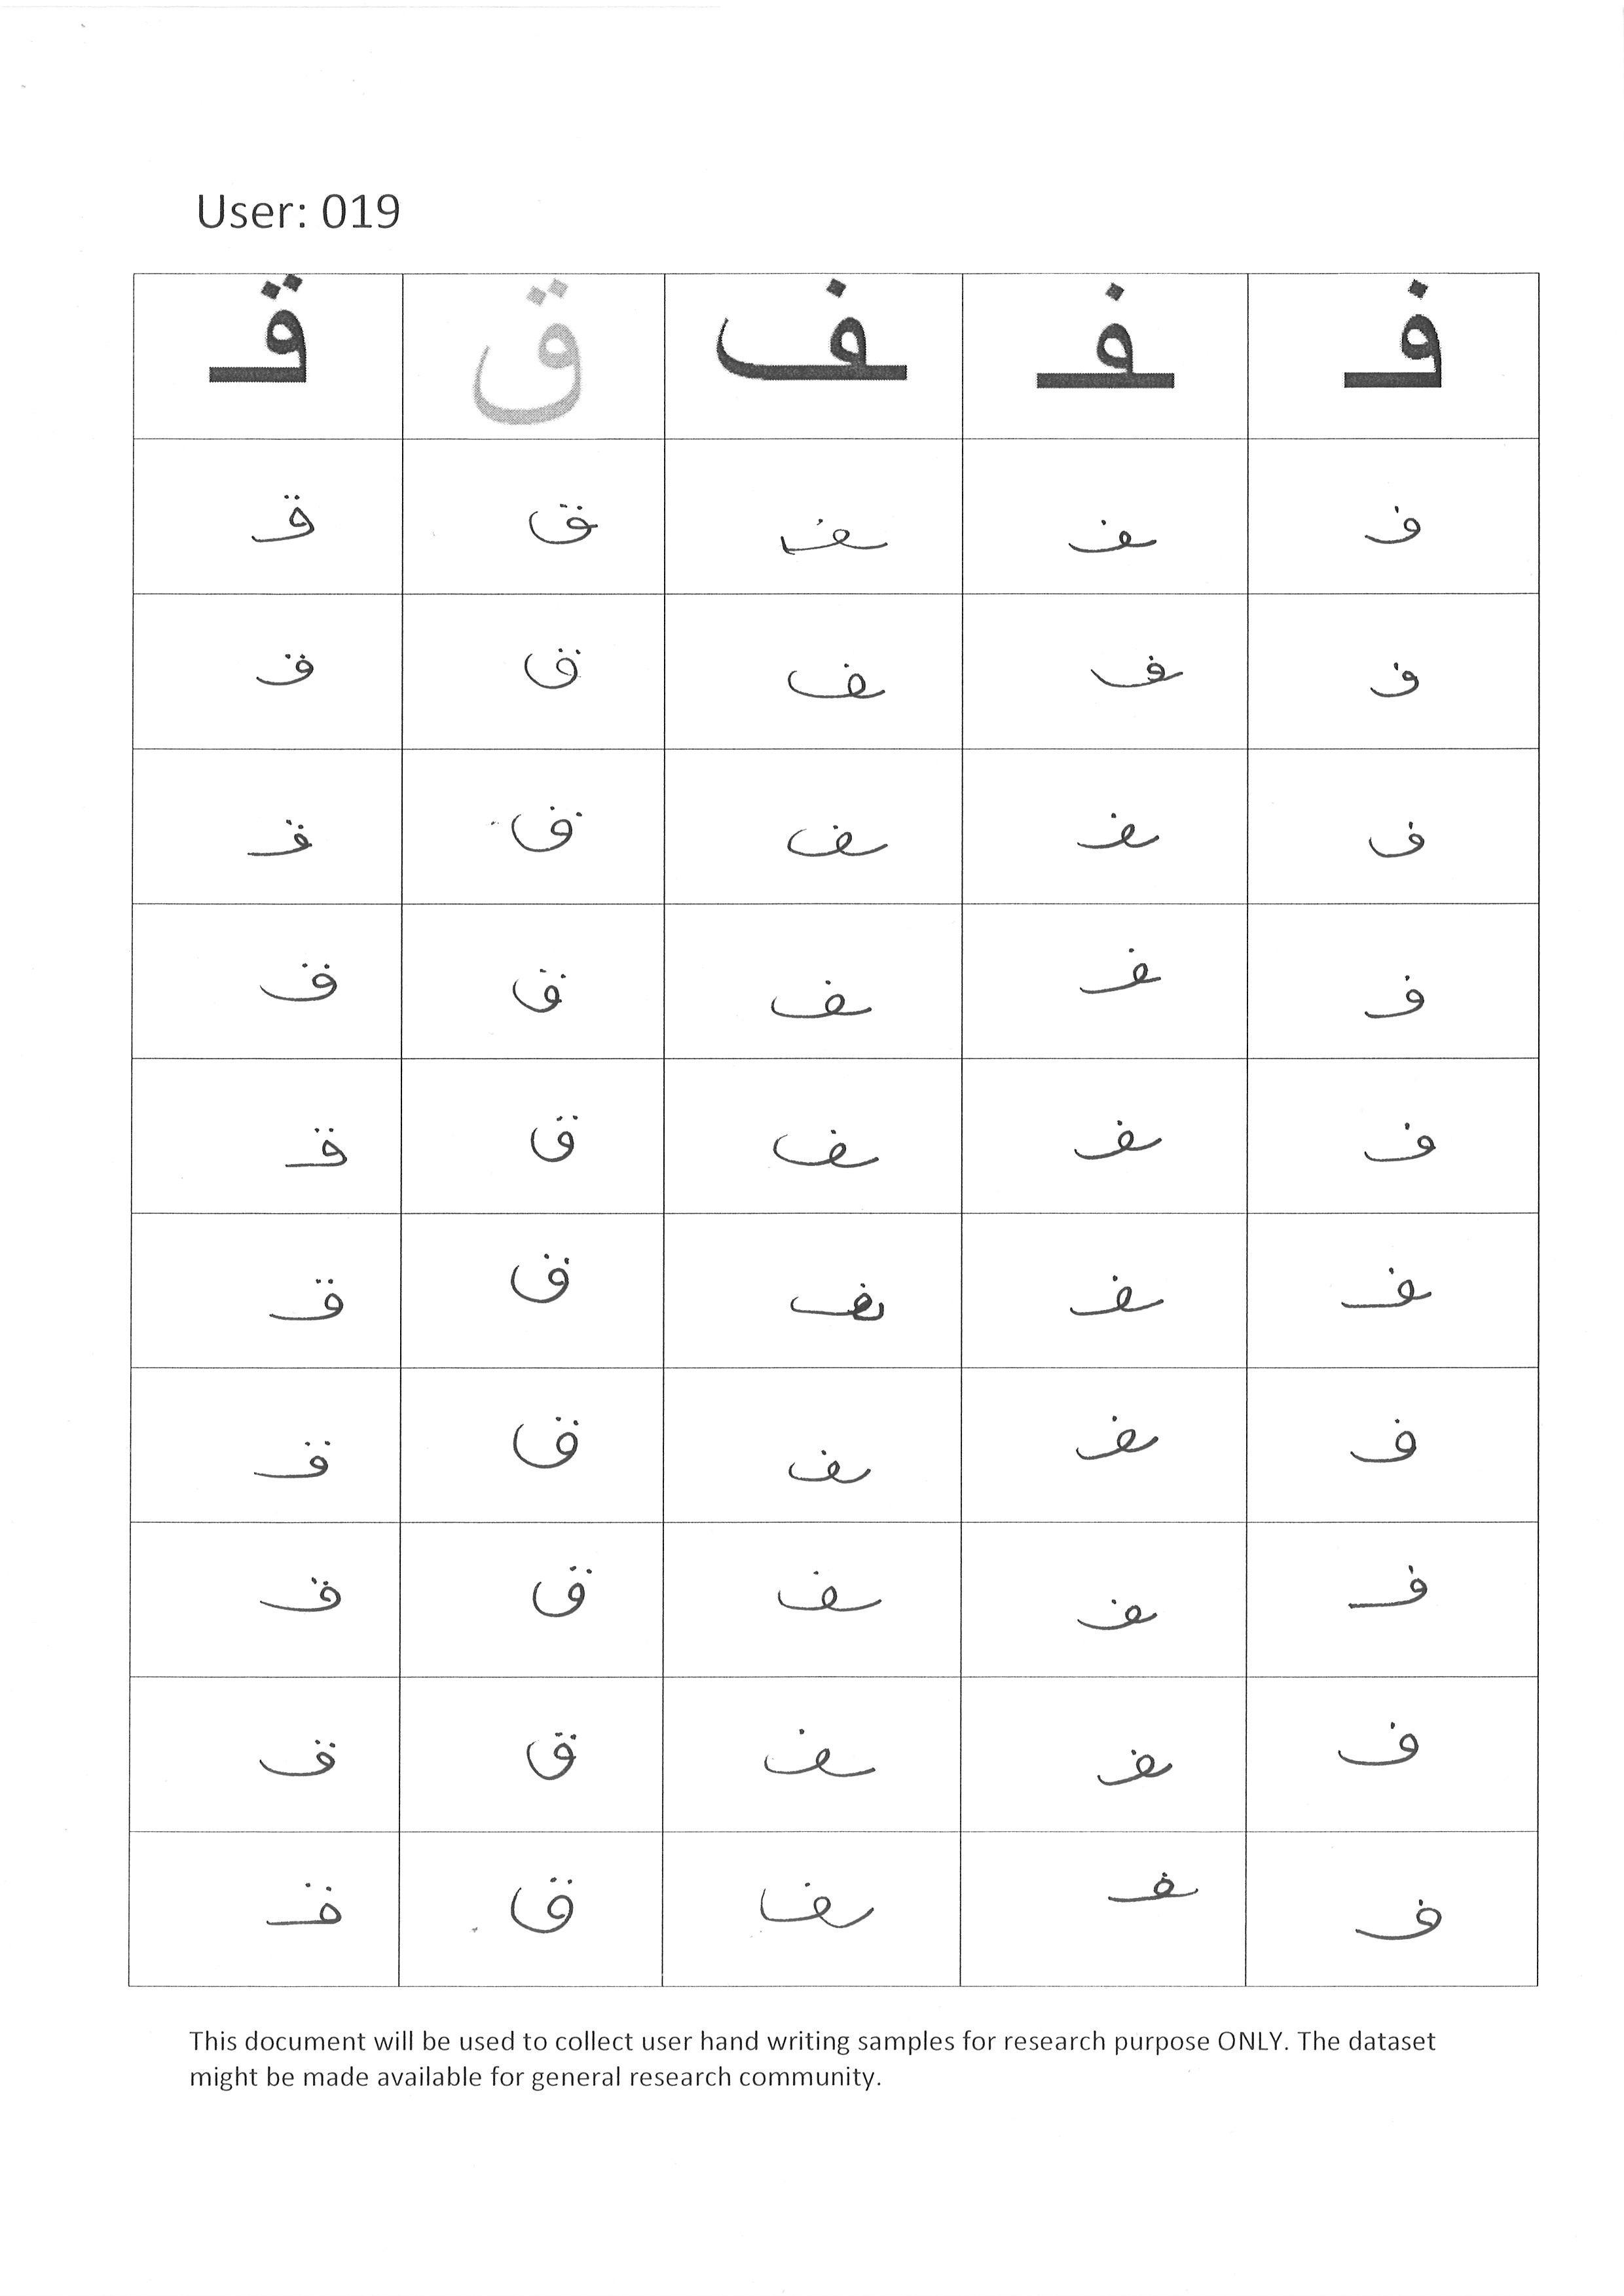 User: 019
ﻗ ق ـف ـفـ ﻓ
ﻗ ق ـف ـفـ ﻓ
ﻗ ق ـف ـفـ ﻓ
ﻗ ق ـف ـفـ ﻓ
ﻗ ق ـف ـفـ ﻓ
ﻗ ق ـف ـفـ ﻓ
ﻗ ق ـف ـفـ ﻓ
ﻗ ق ـف ـفـ ﻓ
ﻗ ق ـف ـفـ ﻓ
ﻗ ق ـف ـفـ ﻓ
ﻗ ق ـف ـفـ ﻓ
This document will be used to collect user hand writing samples for research purpose ONLY. The dataset
might be made available for general research community.